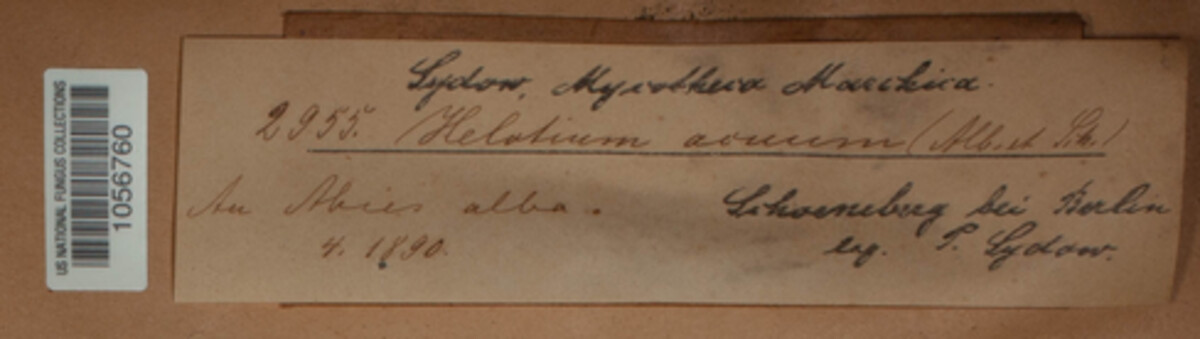 US NATIONAL FUNGUS COLLECTIONS
10567760
Sydow, Mycotheca Marchica.
2955. Helotium acuum (Alb. et Sch.)
An Abies alba.
4. 1890.
Schoeneberg bei Berlin
leg. P. Sydow.